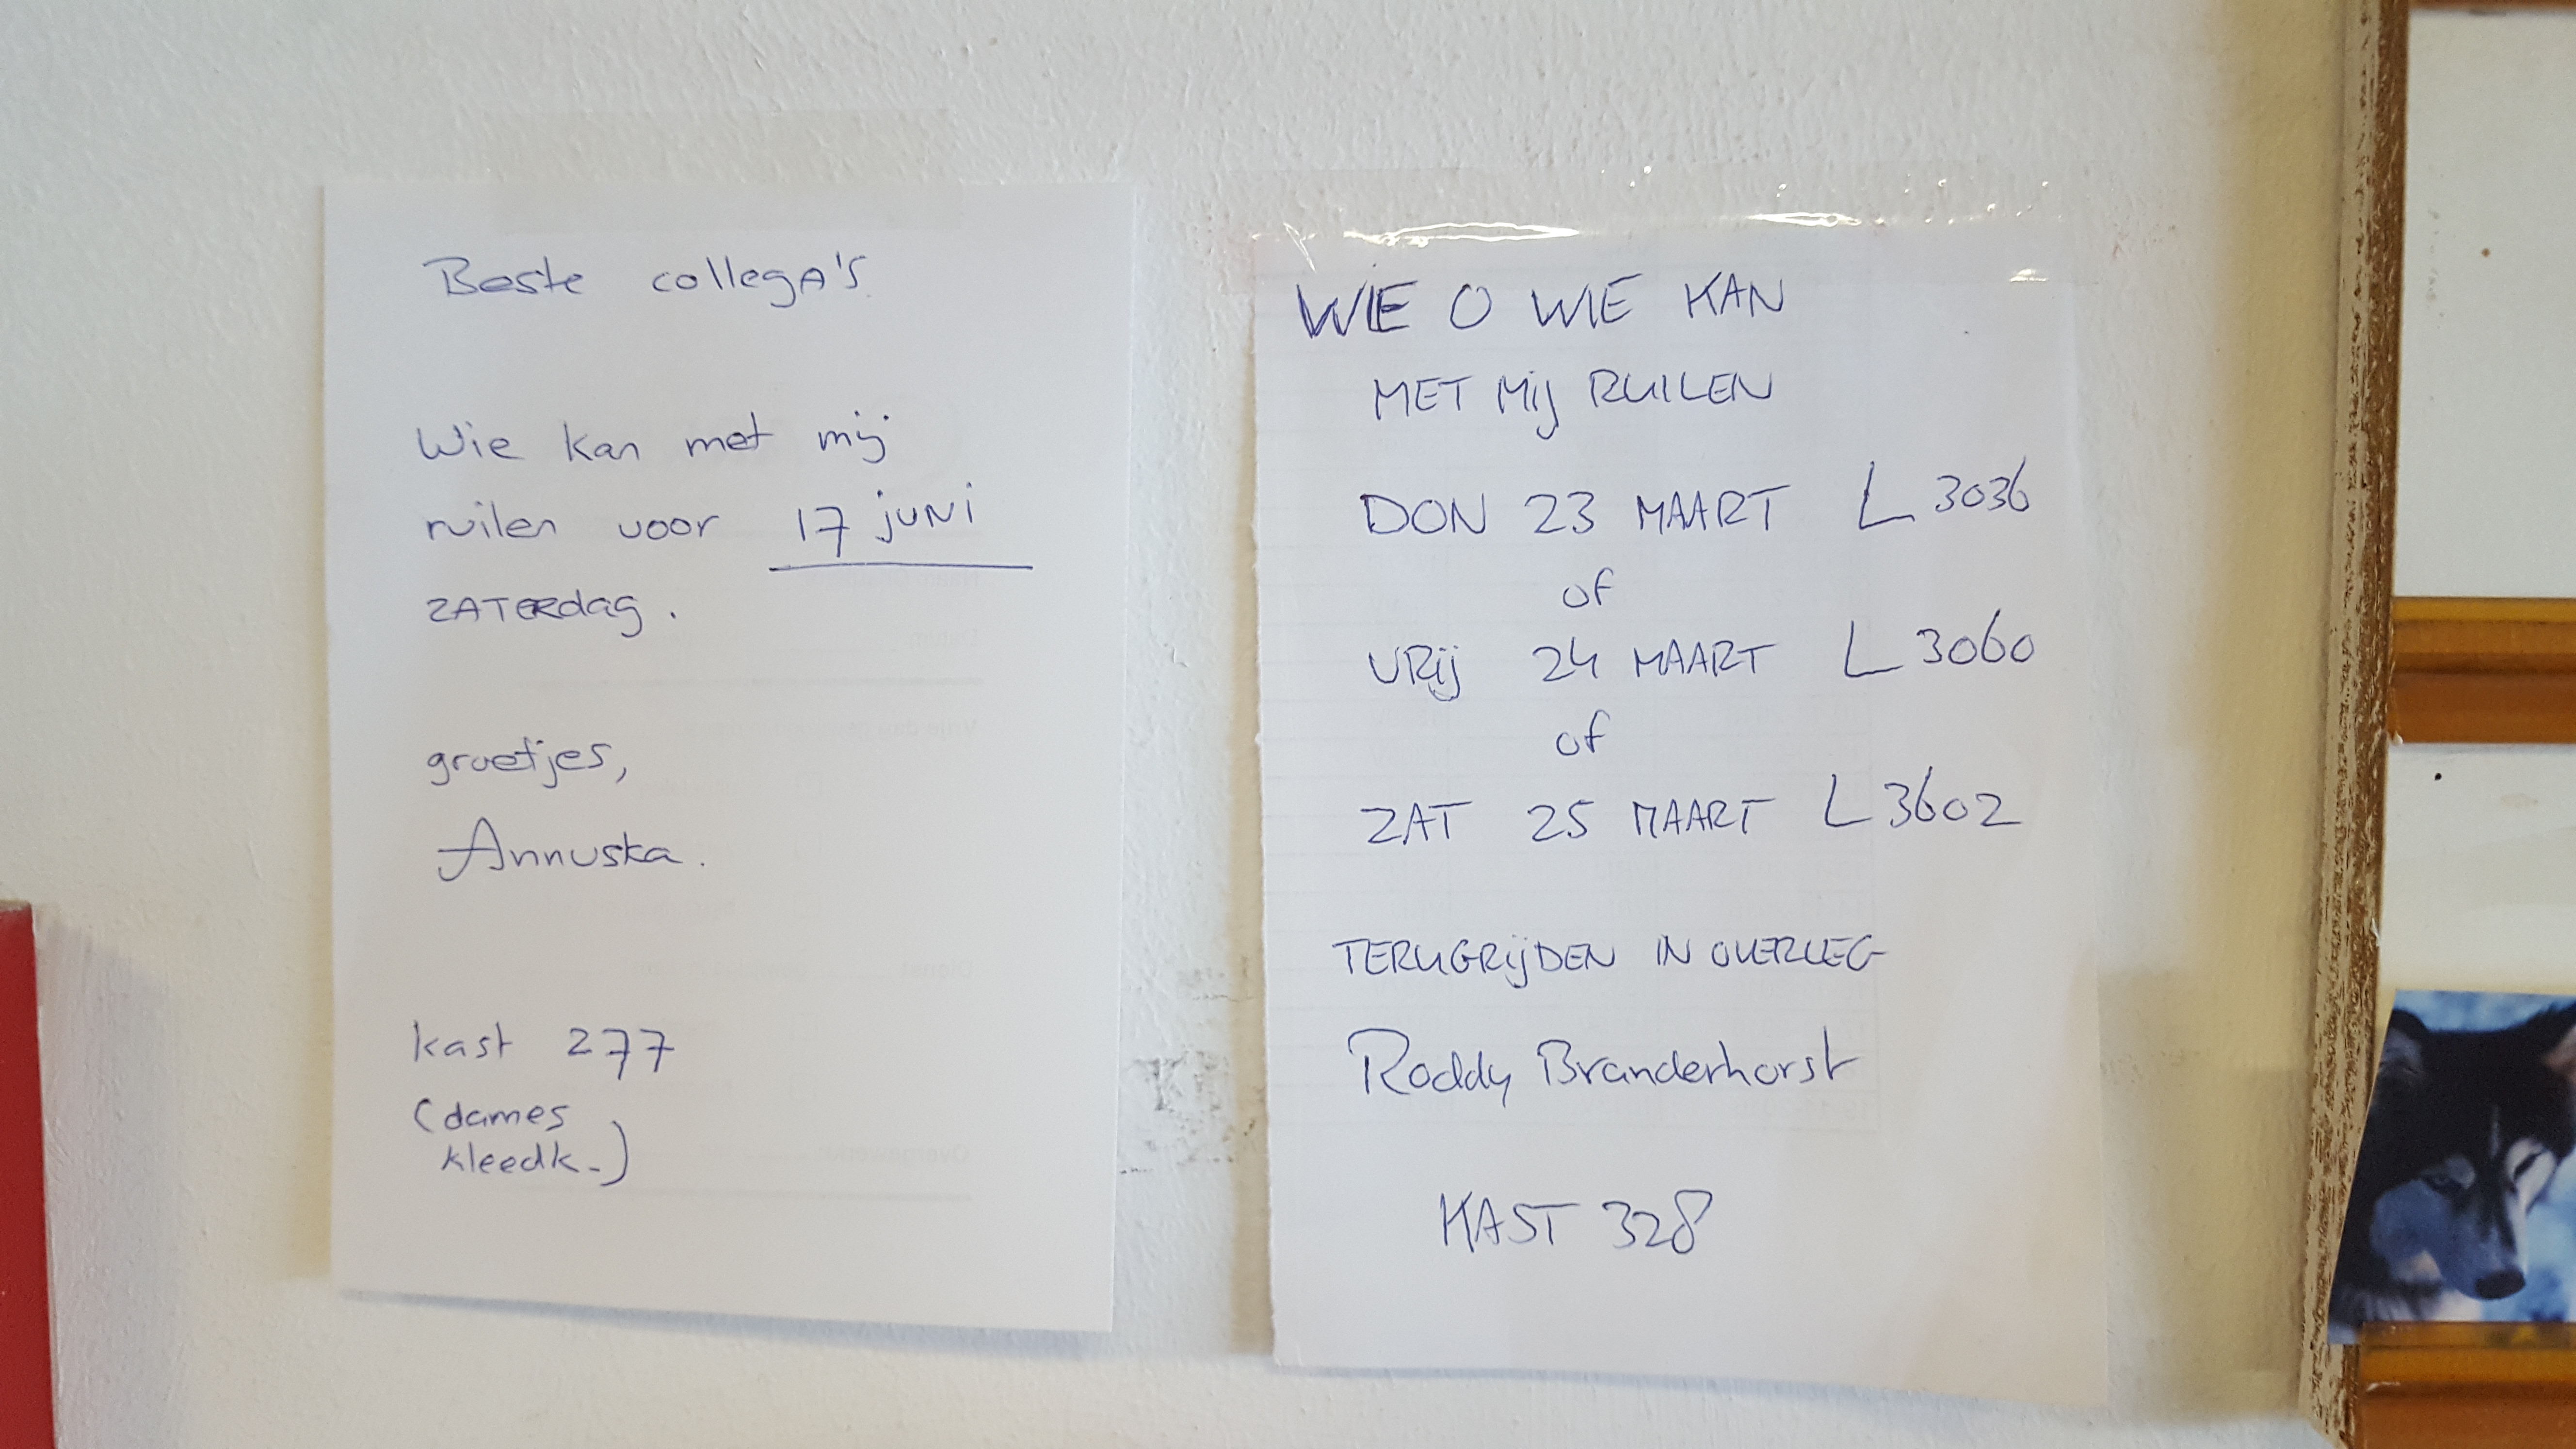 Beste collega's.
Wie kan met mij
ruilen voor 17 juni
zaterdag.
groetjes,
Annuska.
kast 277
(dames
kleedk.)
WIE O WIE KAN
MET Mij RUILEN
DON 23 MAART L 3036
of
VRij 24 MAART L 3060
of
ZAT 25 MAART L 3602
TERUGRijDEN IN OVERLEG
Roddy Branderhorst
KAST 328